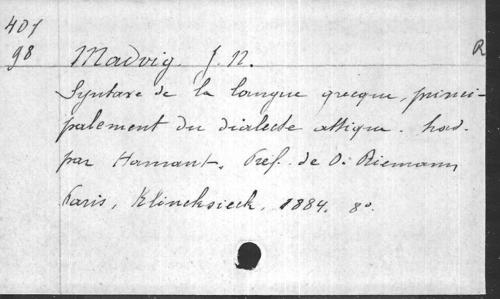 401
98 Madvig, J. N. R
Syntaxe de la langue grecque, princi-
palement du dialecte attique. Trad.
par Hamant. Préf. de O. Riemann
Paris, Klincksieck, 1884. 8o.